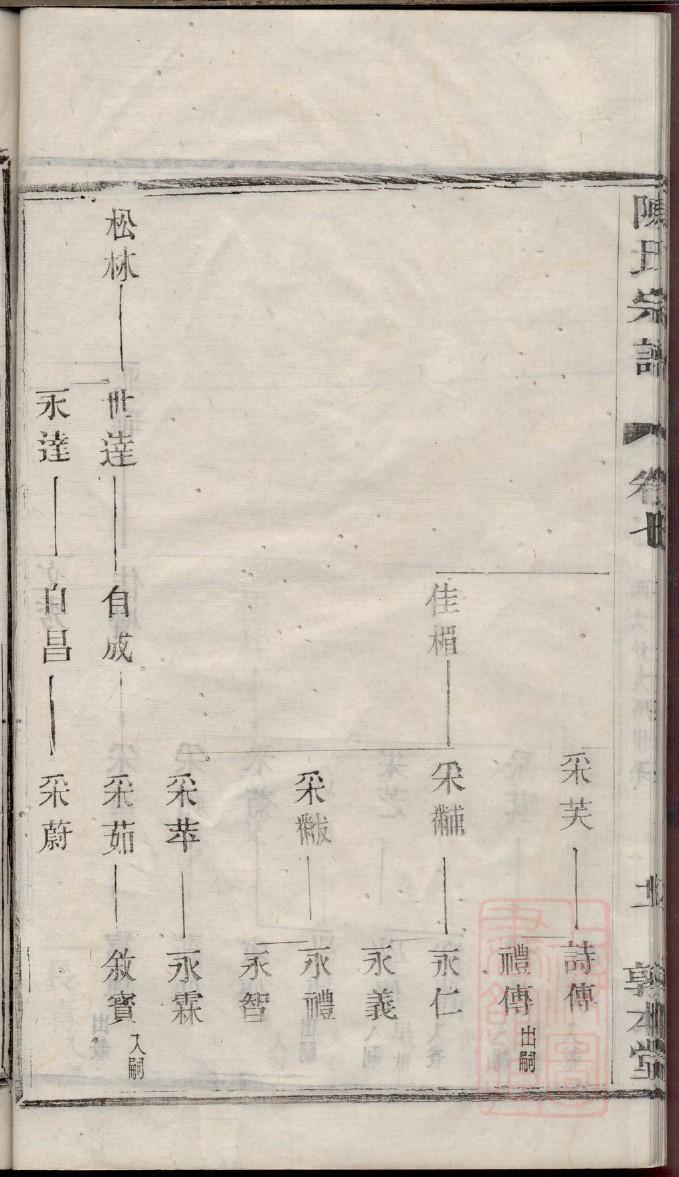 陳氏宗譜 卷七 敦本堂
采芙
詩傳
禮傳 出嗣
佳楣
采黼
永仁
永義
采黻
永禮
永智
采苹
永霖
松林
世達
自成
采茹
敘寶 入嗣
永達
自昌
采蔚